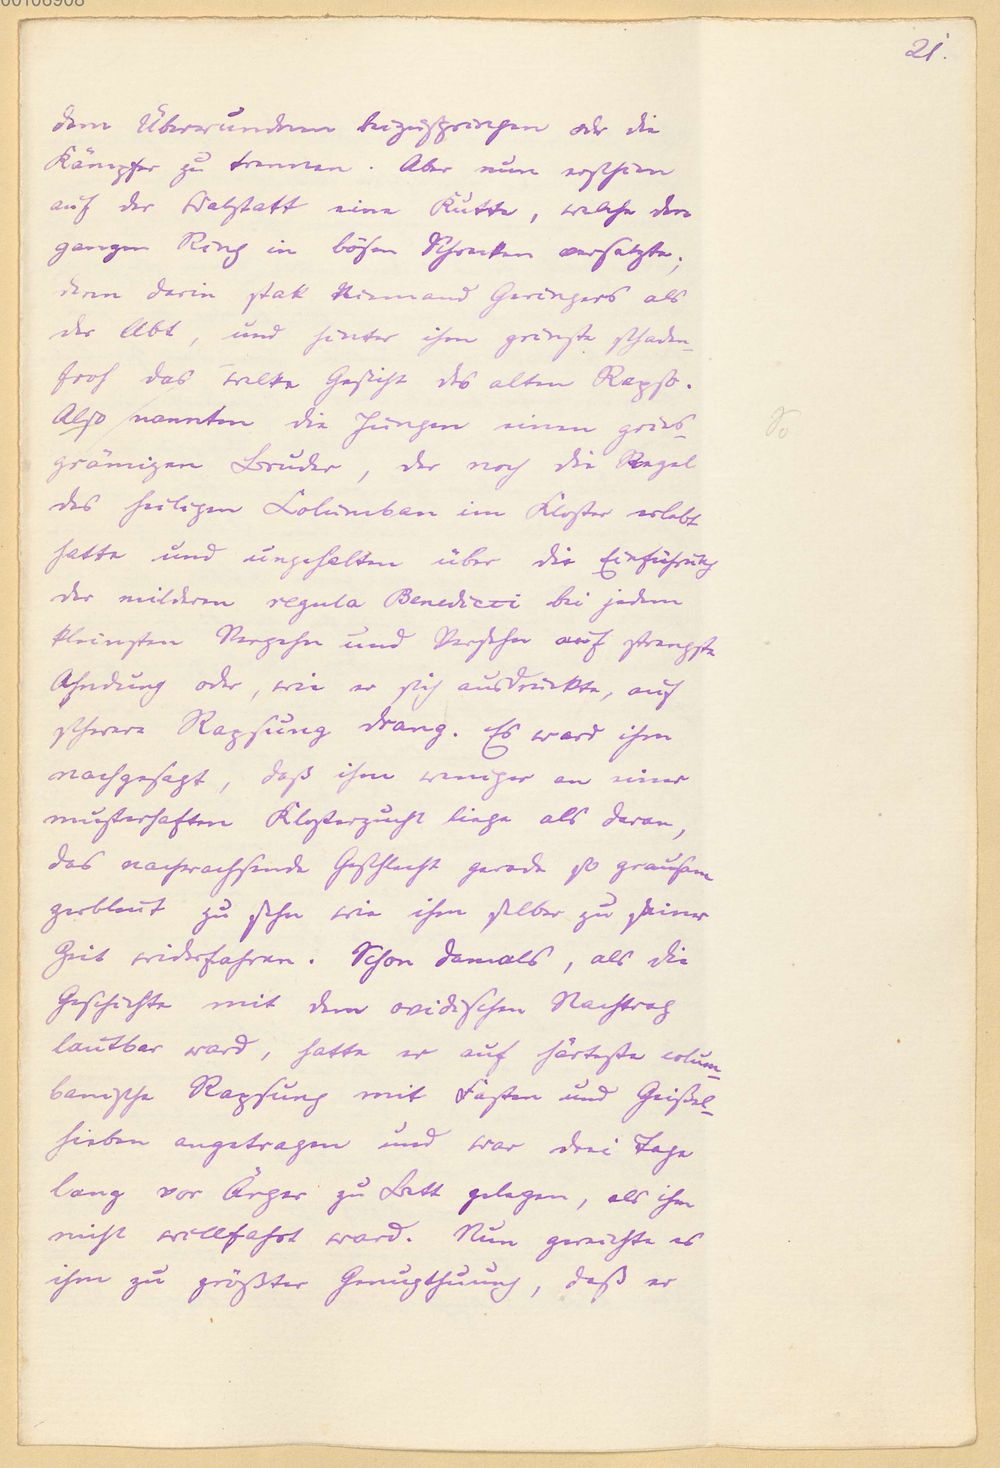 60106908
21.
dem Überwundenen beizuspringen oder die
Kämpfer zu trennen. Aber nun erschien
auf der Walstatt eine Kutte, welche den
ganzen Ring in bösen Schrecken versetzte;
denn darin stak Niemand Geringers als
der Abt, und hinter ihm grinste schaden-
froh das welke Gesicht des alten Rapso.
Also nannten die Jungen einen gries-
So
grämigen Bruder, der noch die Regel
des heiligen Columban im Kloster erlebt
hatte und ungehalten über die Einführung
der milderen regula Benedicti bei jedem
kleinsten Vergehn und Versehn auf strengste
Ahndung oder, wie er sich ausdrückte, auf
schwere Rapsung drang. Es ward ihm
nachgesagt, daß ihm weniger an einer
musterhaften Klosterzucht liege als daran,
das nachwachsende Geschlecht gerade so grausam
zerbleut zu sehn wie ihm selber zu seiner
Zeit widerfahren. Schon damals, als die
Geschichte mit dem ovidischen Nachtrag
lautbar ward, hatte er auf härteste colum-
banische Rapsung mit Fasten und Geißel-
hieben angetragen und war drei Tage
lang vor Ärger zu Bett gelegen, als ihm
nicht willfahrt ward. Nun gereichte es
ihm zu größter Genugthuung, daß er